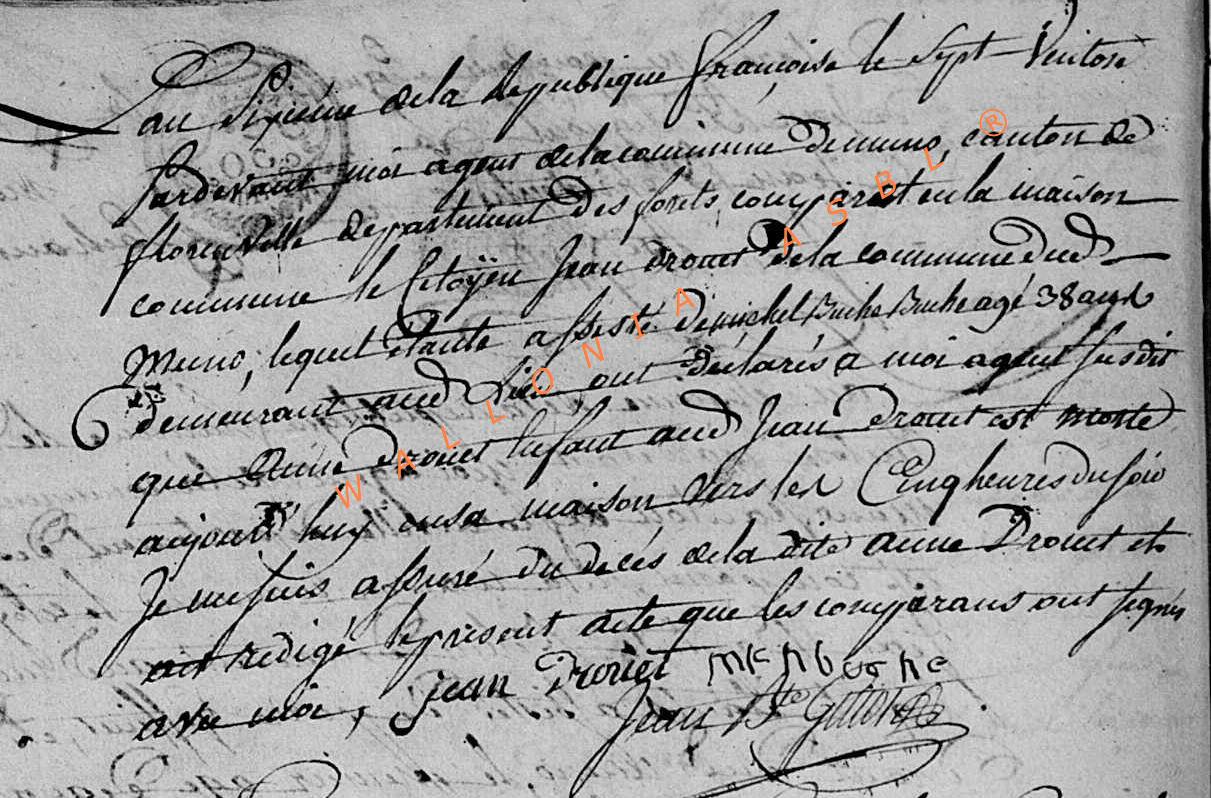 L'an Sixiéme de la Republique françoise le Sept Ventose
Pardevant moi agent de la commune de muno, canton de
florenville departement Des forets comparut en la maison
commune le Citoÿen Jean Drouet de la commune dud
Muno, lequel étante assesté de michel Buche agé 38 ans
demeurant aud lieu ont déclarés a moi agent susdit
que Anne Drouet Enfant aud Jean Drouet est morte
aujourd'huy en sa maison vers les Cinq heures du soir
Je me suis assuré du decés de la dite anne Drouet et
ait redigé le present acte que les comparans ont signés
avec moi, jean Drouet
Jean Bte
WALLONIA ASBL ®